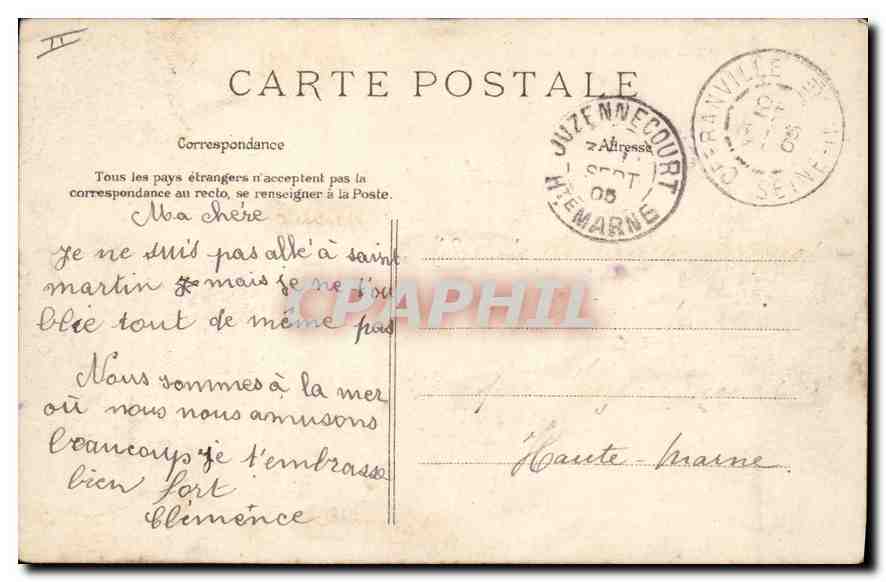 II
CARTE POSTALE
Correspondance
Adresse
Tous les pays étrangers n'acceptent pas la
correspondance au recto, se renseigner à la Poste.
Ma chère
Je ne suis pas allé à saint
martin mais je ne t'ou
blie tout de même pas
Nous sommes à la mer
où nous nous amusons
beaucoup je t'embrasse
bien fort
Clémence
JUZENNECOURT
SEPT
05
HTE MARNE
OFFRANVILLE
SEINE-INF
05
Haute-Marne
CPAPHIL